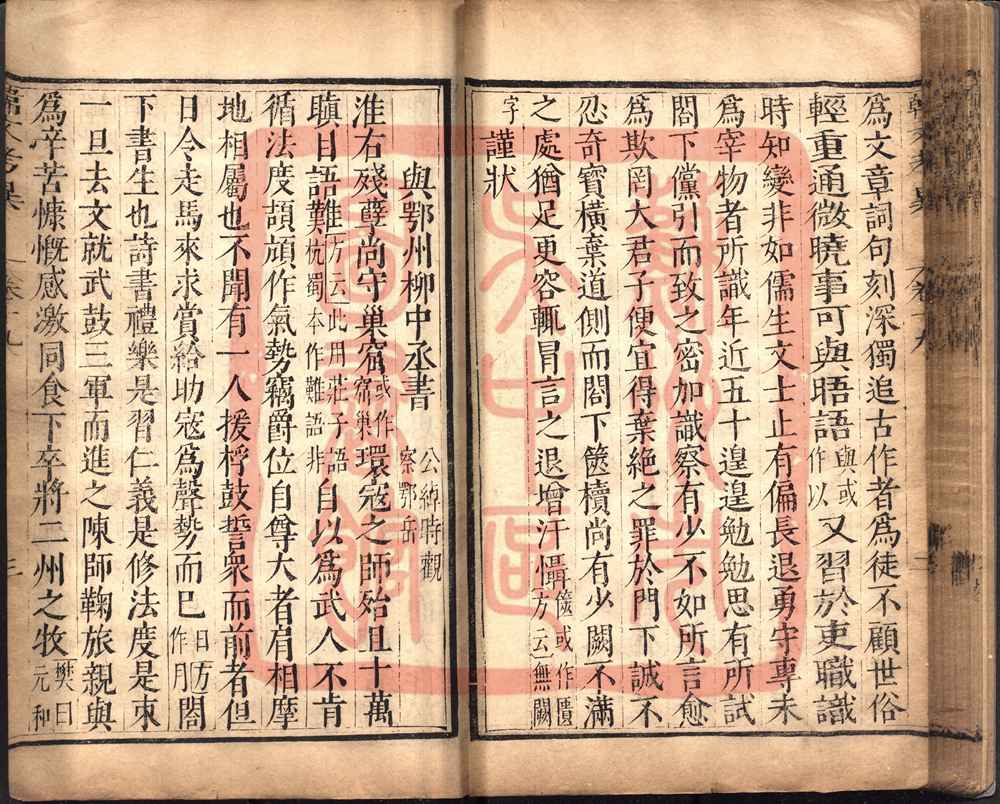 爲文章詞句刻深獨追古作者爲徒不顧世俗
輕重通微曉事可與晤語與或作以又習於吏職識
時知變非如儒生文士止有偏長退勇守專未
爲宰物者所識年近五十遑遑勉勉思有所試
閤下儻引而致之密加識察有少不如所言愈
爲欺罔大君子便宜得棄絶之罪於門下誠不
忍奇寶橫棄道側而閤下篋櫝尚有少闕不滿
之處猶足更容輒冒言之退增汗慴篋或作匱方云無闕
字謹狀
與鄂州柳中丞書公綽時觀察鄂岳
淮右殘孽尚守巢窟或作窟巢環寇之師殆且十萬
瞋目語難方云此用莊子語杭蜀本作難語非自以爲武人不肯
循法度頡頏作氣勢竊爵位自尊大者肩相摩
地相屬也不聞有一人援桴鼓誓衆而前者但
日令走馬來求賞給助寇爲聲勢而已日方作月閤
下書生也詩書禮樂是習仁義是修法度是束
一旦去文就武鼓三軍而進之陳師鞠旅親與
爲辛苦慷慨感激同食下卒將二州之牧樊曰元和